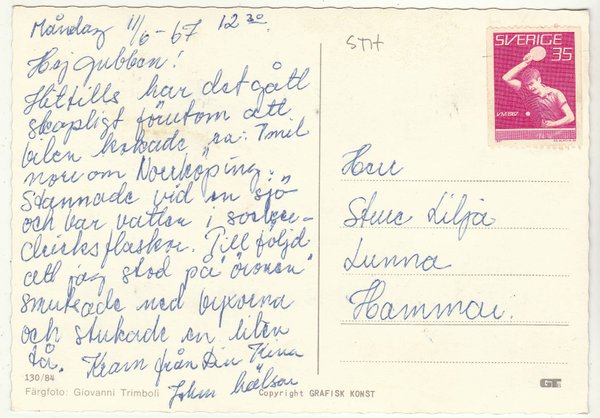 Måndag 11/6-67 12 30
Hej gubben!
Hittills har det gått
skapligt förutom att
bilen kokade, ca: 7 mil
norr om Norrköping.
Stannade vid en sjö
och bar vatten i socker-
dricksflaskor. Till följd
att jag stod på "öronen"
smutsade ned byxorna
och stukade en liten
tå. Kram från Din Nina
John hälsar
130/84
Färgfoto: Giovanni Trimboli
Copyright GRAFISK KONST
STH
SVERIGE
35
VM 1967
Herr
Sture Lilja
Lunna
Hammar.
GT